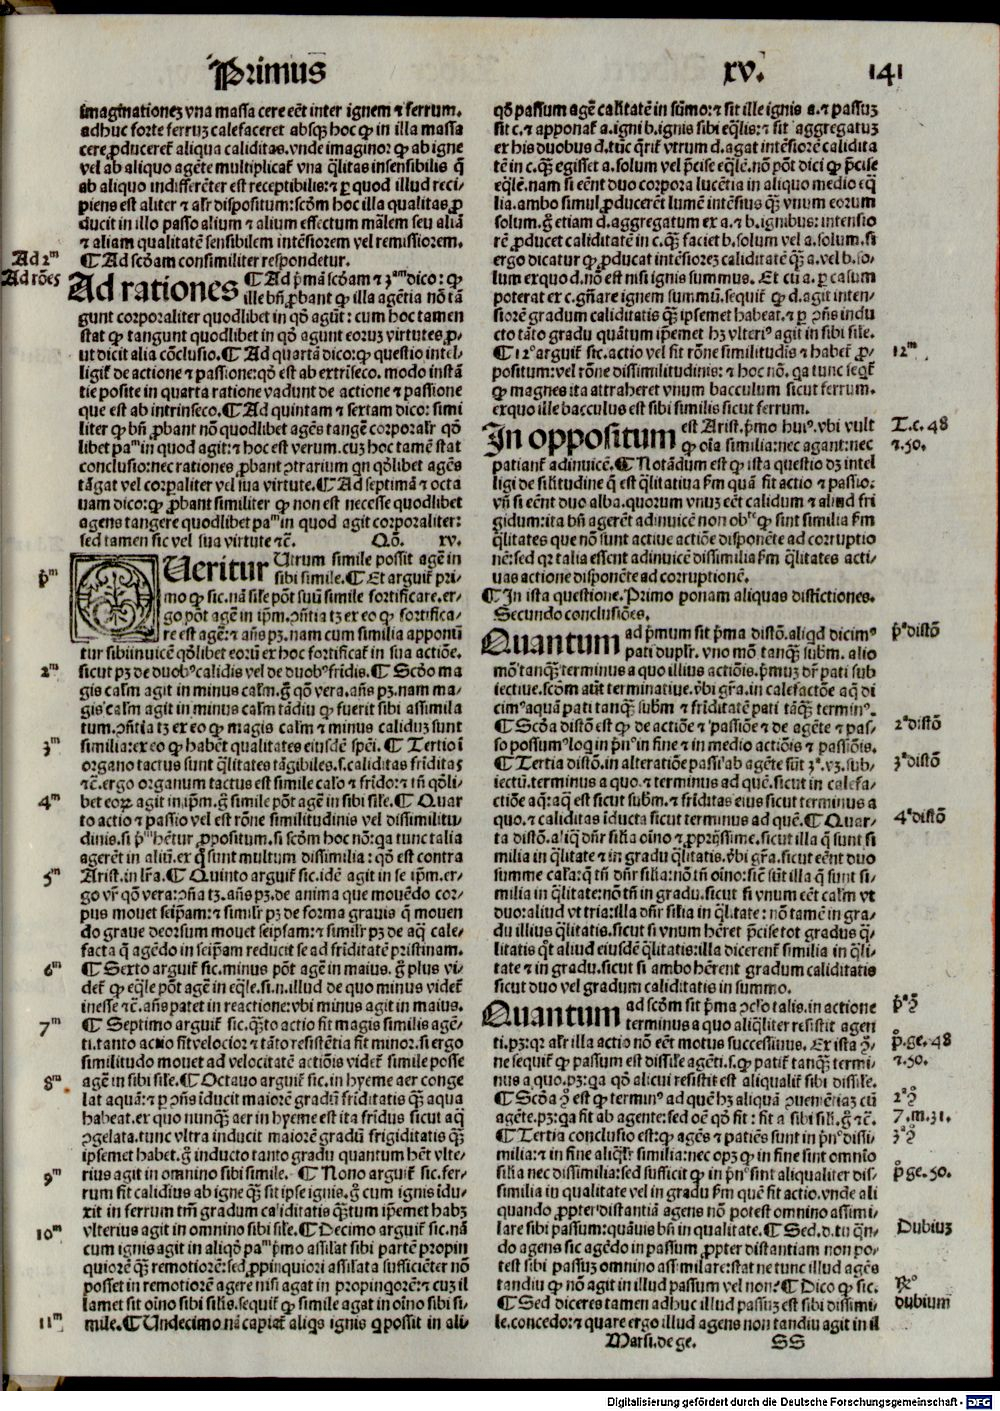 Primus
xv.
141
imaginationez vna massa cere eēt inter ignem ⁊ ferrum.
adhuc forte ferruʒ calefaceret absqʒ hoc ꝙ in illa massa
cere ꝓduceret̄ aliqua caliditas. vnde imaginor ꝙ ab igne
vel ab aliquo agēte multiplicat̄ vna q̄litas insensibilis q̄
ab aliquo indifferēter est receptibilis: ⁊ ꝑ quod illud reci⸗
piens est aliter ⁊ alr̄ dispositum: scōm hoc illa qualitas ꝓ
ducit in illo passo alium ⁊ alium effectum mālem seu aliā
⁊ aliam qualitatē sensibilem intēsiorem vel remissiorem.
Ad 2ᵐ
¶ Ad scōam consimiliter respondetur.
Ad rōes
Ad rationes ¶ Ad p̄mā scōam ⁊ 3ᵃᵐ dico: ꝙ
ille bn̄ ꝓbant ꝙ illa agētia nō tā
gunt corporaliter quodlibet in qō agūt: cum hoc tamen
stat ꝙ tangunt quodlibet in qō agunt eoruʒ virtutes ꝓ⸗
ut dicit alia cōclusio. ¶ Ad quartā dico: ꝙ questio intel⸗
ligit̄ de actione ⁊ passione: qō est ab extrīseco. modo instā
tie posite in quarta ratione vadunt de actione ⁊ passione
que est ab intrinseco. ¶ Ad quintam ⁊ sextam dico: simi
liter ꝙ bn̄ ꝓbant nō quodlibet agēs tangē corporalr̄ qō
libet paᵐ in quod agit: ⁊ hoc est verum. cuʒ hoc tamē stat
conclusio: nec rationes ꝓbant ꝯtrarium qn̄ qōlibet agēs
tāgat vel corꝑaliter vel sua virtute. ¶ Ad septimā ⁊ octa
uam dico: ꝙ ꝓbant similiter ꝙ non est necesse quodlibet
agens tangere quodlibet paᵐ in quod agit corporaliter:
sed tamen sic vel sua virtute ⁊c̄. Qō. xv.
p̄ᵐ
Queritur Utrum simile possit agē in
sibi simile. ¶ Et arguit̄ pri⸗
mo ꝙ sic. nā sile pōt suū simile fortificare. er⸗
go pōt agē in ip̄m. ꝯn̄tia tʒ ex eo ꝙ fortifica⸗
re est agē: ⁊ an̄s pʒ. nam cum similia apponū
tur sibiinuicē qōlibet eorū ex hoc fortificat̄ in sua actiōe.
2ᵐ
sicut pʒ de duobꝰ calidis vel de duobꝰ fr̄idis. ¶ Scōo ma
gis calm̄ agit in minus calm̄. ḡ qō vera. an̄s pʒ. nam ma⸗
gis calm̄ agit in minus calm̄ tādiu ꝙ fuerit sibi assimila
tum. ꝯn̄tia tʒ ex eo ꝙ magis calm̄ ⁊ minus caliduʒ sunt
3ᵐ
similia: ex eo ꝙ habēt qualitates eiusdē spēi. ¶ Tertio ī
organo tactus sunt q̄litates tāgibiles. s. caliditas fr̄iditas
⁊c̄. ergo organum tactus est simile calo ⁊ fr̄ido: ⁊ tn̄ qōli⸗
4ᵐ
bet eoꝝ agit in ip̄m. ḡ simile pōt agē in sibi sile. ¶ Quar
to actio ⁊ passio vel est rōne similitudinis vel dissimilitu⸗
dinis. si p̄ᵐ hētur ꝓpositum. si scōm hoc nō: qa tunc talia
agerēt in aliū. ex quo sunt multum dissimilia: qō est contra
5ᵐ
Arist. in lr̄a. ¶ Quinto arguit̄ sic. idē agit in se ip̄m. er⸗
go vr̄ qō vera: ꝯn̄a tʒ. an̄s pʒ. de anima que mouēdo cor⸗
pus mouet seip̄am: ⁊ similr̄ pʒ de forma grauis q̄ mouen
do graue deorsum mouet seipsam: ⁊ similr̄ pʒ de aq̄ cale⸗
facta q̄ agēdo in seip̄am reducit se ad fr̄iditatē pristinam.
6ᵐ
¶ Sexto arguit̄ sic. minus pōt agē in maius. ḡ plus vi⸗
det̄ ꝙ eq̄le pōt agē in eq̄le. si. n. illud de quo minus videt̄
inesse ⁊c̄. an̄s patet in reactione: vbi minus agit in maius.
7ᵐ
¶ Septimo arguit̄ sic. quāto actio fit magis similis agē⸗
ti. tanto actio fit velocior ⁊ tāto resistētia fit minor. si ergo
similitudo mouet ad velocitatē actiōis videt̄ simile posse
8ᵐ
agē in sibi sile. ¶ Octauo arguit̄ sic. in hyeme aer conge
lat aquā: ⁊ ꝑ ꝯn̄s īducit maiorē gradū fr̄iditatis qꝫ̄ aqua
habeat. ex quo nunqꝫ̄ aer in hyeme est ita fr̄idus sicut aq̄
ꝯgelata. tunc vltra inducit maiorē gradū frigiditatis qꝫ̄
ipsemet habet. ḡ inducto tanto gradu quantum hēt vlte⸗
9ᵐ
rius agit in omnino sibi simile. ¶ Nono arguit̄ sic. fer⸗
rum fit calidius ab igne qꝫ̄ sit ipse ignis. ḡ cum ignis īdu⸗
xit in ferrum tm̄ gradum caliditatis quātum ip̄emet habʒ
10ᵐ
vlterius agit in omnino sibi sile. ¶ Decimo arguit̄ sic. nā
cum ignis agit in aliqō paᵐ p̄mo assilat sibi partē propin
quiorē qꝫ̄ remotiorē: sed ꝓpinquiori assilata sufficiēter nō
posset in remotiorē agere nisi agat in propinqorē: ⁊ cuʒ il
la met sit oīno sibi silis. sequit̄ ꝙ simile agat in oīno sibi si⸗
11ᵐ
mile. ¶ Undecimo nā capiat̄ aliqs ignis q possit in ali
qō passum agē calitatē in sūmo: ⁊ sit ille ignis a. ⁊ passuʒ
sit c. ⁊ apponat̄ a. igni b. ignis sibi eq̄lis: ⁊ sit aggregatuʒ
ex his duobus d. tūc q̄rit̄ vtrum d. agat intēsiorē calidita
tē in c. qꝫ̄ egisset a. solum vel p̄cise eq̄lē. nō pōt dici ꝙ p̄cise
eq̄lē. nam si eēnt duo corpora lucētia in aliquo medio eq̄
lia. ambo simul ꝓducerēt lumē intēsius qꝫ̄ vnum eorum
solum. ḡ etiam d. aggregatum ex a. ⁊ b. ignibus: intensio
rē ꝓducet caliditatē in c. qꝫ̄ faciet b. solum vel a. solum. si
ergo dicatur ꝙ ꝓducat intēsioreʒ caliditatē qꝫ̄ a. vel b. so⸗
lum ex quo d. nō est nisi ignis summus. Et cū a. ꝑ casum
poterat ex c. gn̄are ignem summū. sequit̄ ꝙ d. agit inten⸗
siorē gradum caliditatis qꝫ̄ ipsemet habeat. ⁊ ꝑ ꝯn̄s indu
cto tāto gradu quātum ip̄emet hʒ vlteriꝰ agit in sibi sile.
12ᵐ
¶ 12º arguit̄ sic. actio vel fit rōne similitudīs ⁊ habet̄ ꝓ⸗
positum: vel rōne dissimilitudinis: ⁊ hoc nō. qa tunc seqt̄
ꝙ magnes ita attraheret vnum bacculum sicut ferrum.
ex quo ille bacculus est sibi similis sicut ferrum.
T. c. 48
⁊ .50.
In oppositum est Arist. p̄mo huiꝰ. vbi vult
ꝙ oīa similia: nec agant: nec
patiant̄ adinuicē. ¶ Notādum est ꝙ ista questio dʒ intel
ligi de silitudine q̄ est q̄litatiua s̄m quā fit actio ⁊ passio:
vn̄ si eēnt duo alba. quorum vnuʒ eēt calidum ⁊ aliud fri
gidum: ita bn̄ agerēt adinuicē non obᵗᵉ ꝙ sint similia s̄m
q̄litates que nō sunt actiue actiōe disponēte ad corruptio
nē: sed qr talia essent adinuicē dissimilia s̄m q̄litates acti⸗
uas actione dispōnēte ad corruptionē.
¶ In ista questione. Primo ponam aliquas distīctiones.
Secundo conclusiōes.
p̄ᵃ distō
Quantum ad p̄mum sit p̄ma distō. aliqd dicimꝰ
pati duplr̄. vno mō tanqꝫ̄ subm̄. alio
mō tanqꝫ̄ terminus a quo illius actiōis. p̄muʒ dr̄ pati sub
iectiue. scōm aut̄ terminatiue. v̄bi gr̄a. in calefactōe aq̄ di
cimꝰ aquā pati tanqꝫ̄ subm̄ ⁊ fr̄iditatē pati tāqꝫ̄ terminꝰ.
2ᵃ distō
¶ Scōa distō est ꝙ de actiōe ⁊ passiōe ⁊ de agēte ⁊ pas⸗
so possumꝰ loq in prīnᵒ in fine ⁊ in medio actiōis ⁊ passiōis.
3ᵃ distō
¶ Tertia distō. in alteratiōe passi ab agēte sūt 3ᵃ. vʒ. sub⸗
iectū. terminus a quo. ⁊ terminus ad quē. sicut in calefa⸗
ctiōe aq̄: aq̄ est sicut subm̄. ⁊ fr̄iditas eius sicut terminus a
4ᵃ distō
quo. ⁊ caliditas īducta sicut terminus ad quē. ¶ Quar⸗
ta distō. aliq̄ dn̄r silia oīno ⁊ ꝓprijssime. sicut illa q̄ sunt si
milia in q̄litate ⁊ in gradu q̄litatis. v̄bi gr̄a. sicut eēnt duo
summe cala: q̄ tn̄ dn̄r silia: nō tn̄ oīno: sic sūt illa q̄ sunt si⸗
milia in q̄litate: nō tn̄ in gradu. sicut si vnum eēt calm̄ vt
duo: aliud vt tria: illa dn̄r silia in q̄litate: nō tamē in gra⸗
du illius q̄litatis. sicut si vnum hēret p̄cise tot gradus q̄⸗
litatis qt aliud eiusdē q̄litatis: illa dicerent̄ similia in q̄li⸗
tate ⁊ in gradu. sicut si ambo hērent gradum caliditatis
sicut duo vel gradum caliditatis in summo.
p̄ᵃ ꝯ̄
Quantum ad scōm sit p̄ma ꝯclō talis. in actione
terminus a quo aliq̄liter resistit agen
p̄. ge. 48
⁊ .50.
ti. pʒ: qr alr̄ illa actio nō eēt motus successiuus. Ex ista ꝯ̄⸗
ne sequit̄ ꝙ passum est dissile agēti. s. ꝙ patit̄ tanqꝫ̄ termi⸗
nus a quo. pʒ: qa qō alicui resistit est aliqualit̄ sibi dissile.
2ᵃ ꝯ̄
¶ Scōa ꝯ̄ est ꝙ terminꝰ ad quē hʒ aliquā ꝯueniētiaʒ cū
7. m. 31.
agēte. pʒ: qa fit ab agente: sed oē qō fit: fit a sibi sili. ḡ ⁊c̄.
3ᵃ ꝯ̄
¶ Tertia conclusio est: ꝙ agēs ⁊ patiēs sunt in prīnᵒ dissi⸗
milia: ⁊ in fine aliqlr̄ similia: nec opʒ ꝙ in fine sint omnīo
p̄ ge. 50.
silia nec dissimilia: sed sufficit ꝙ in prīnᵒ sint aliqualiter dis⸗
similia in qualitate vel in gradu s̄m quē fit actio. vnde ali
quando ꝓpter distantiā agens nō potest omnino assimi⸗
Dubiuʒ
lare sibi passum: quāuis bn̄ in qualitate. ¶ Sed. d. tu qn̄⸗
do agens sic agēdo in passum ꝓpter distantiam non po⸗
test sibi passuʒ omnino assimilare: stat ne tunc illud agēs
℞º
tandiu ꝙ nō agit in illud passum vel non? ¶ Dico ꝙ sic.
dubium
¶ Sed diceres tamen adhuc illud passuʒ est sibi dissimi⸗
le. concedo: ⁊ quare ergo illud agens non tandiu agit in il
Marsi. de ge. SS
Digitalisierung gefördert durch die Deutsche Forschungsgemeinschaft - DFG